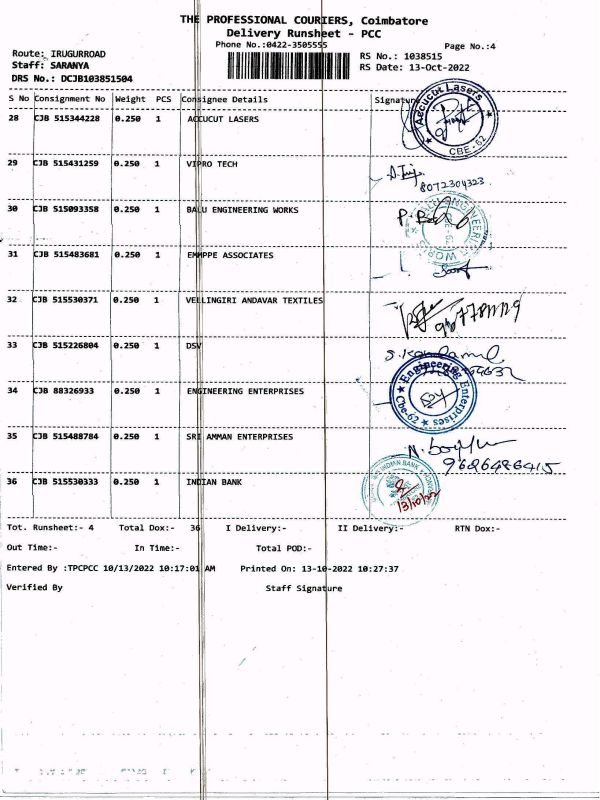 THE PROFESSIONAL COURIERS, Coimbatore
Delivery Runsheet - PCC
Phone No.:0422-3505555
Page No.:4
Route: IRUGURROAD
Staff: SARANYA
DRS No.: DCJB103851504
RS No.: 1038515
RS Date: 13-Oct-2022
S No Consignment No Weight PCS Consignee Details Signature
28 CJB 515344228 0.250 1 ACCUCUT LASERS
Accucut Lasers
CBE-62
29 CJB 515431259 0.250 1 VIPRO TECH
8072304323
30 CJB 515093358 0.250 1 BALU ENGINEERING WORKS
31 CJB 515483681 0.250 1 EMMPPE ASSOCIATES
32 CJB 515530371 0.250 1 VELLINGIRI ANDAVAR TEXTILES
33 CJB 515226804 0.250 1 DSV
34 CJB 88326933 0.250 1 ENGINEERING ENTERPRISES
Engineering Enterprises
Cbe-62
35 CJB 515488784 0.250 1 SRI AMMAN ENTERPRISES
9626486415
36 CJB 515530333 0.250 1 INDIAN BANK
INDIAN BANK
13/10/22
Tot. Runsheet:- 4 Total Dox:- 36 I Delivery:- II Delivery:- RTN Dox:-
Out Time:- In Time:- Total POD:-
Entered By :TPCPCC 10/13/2022 10:17:01 AM Printed On: 13-10-2022 10:27:37
Verified By Staff Signature